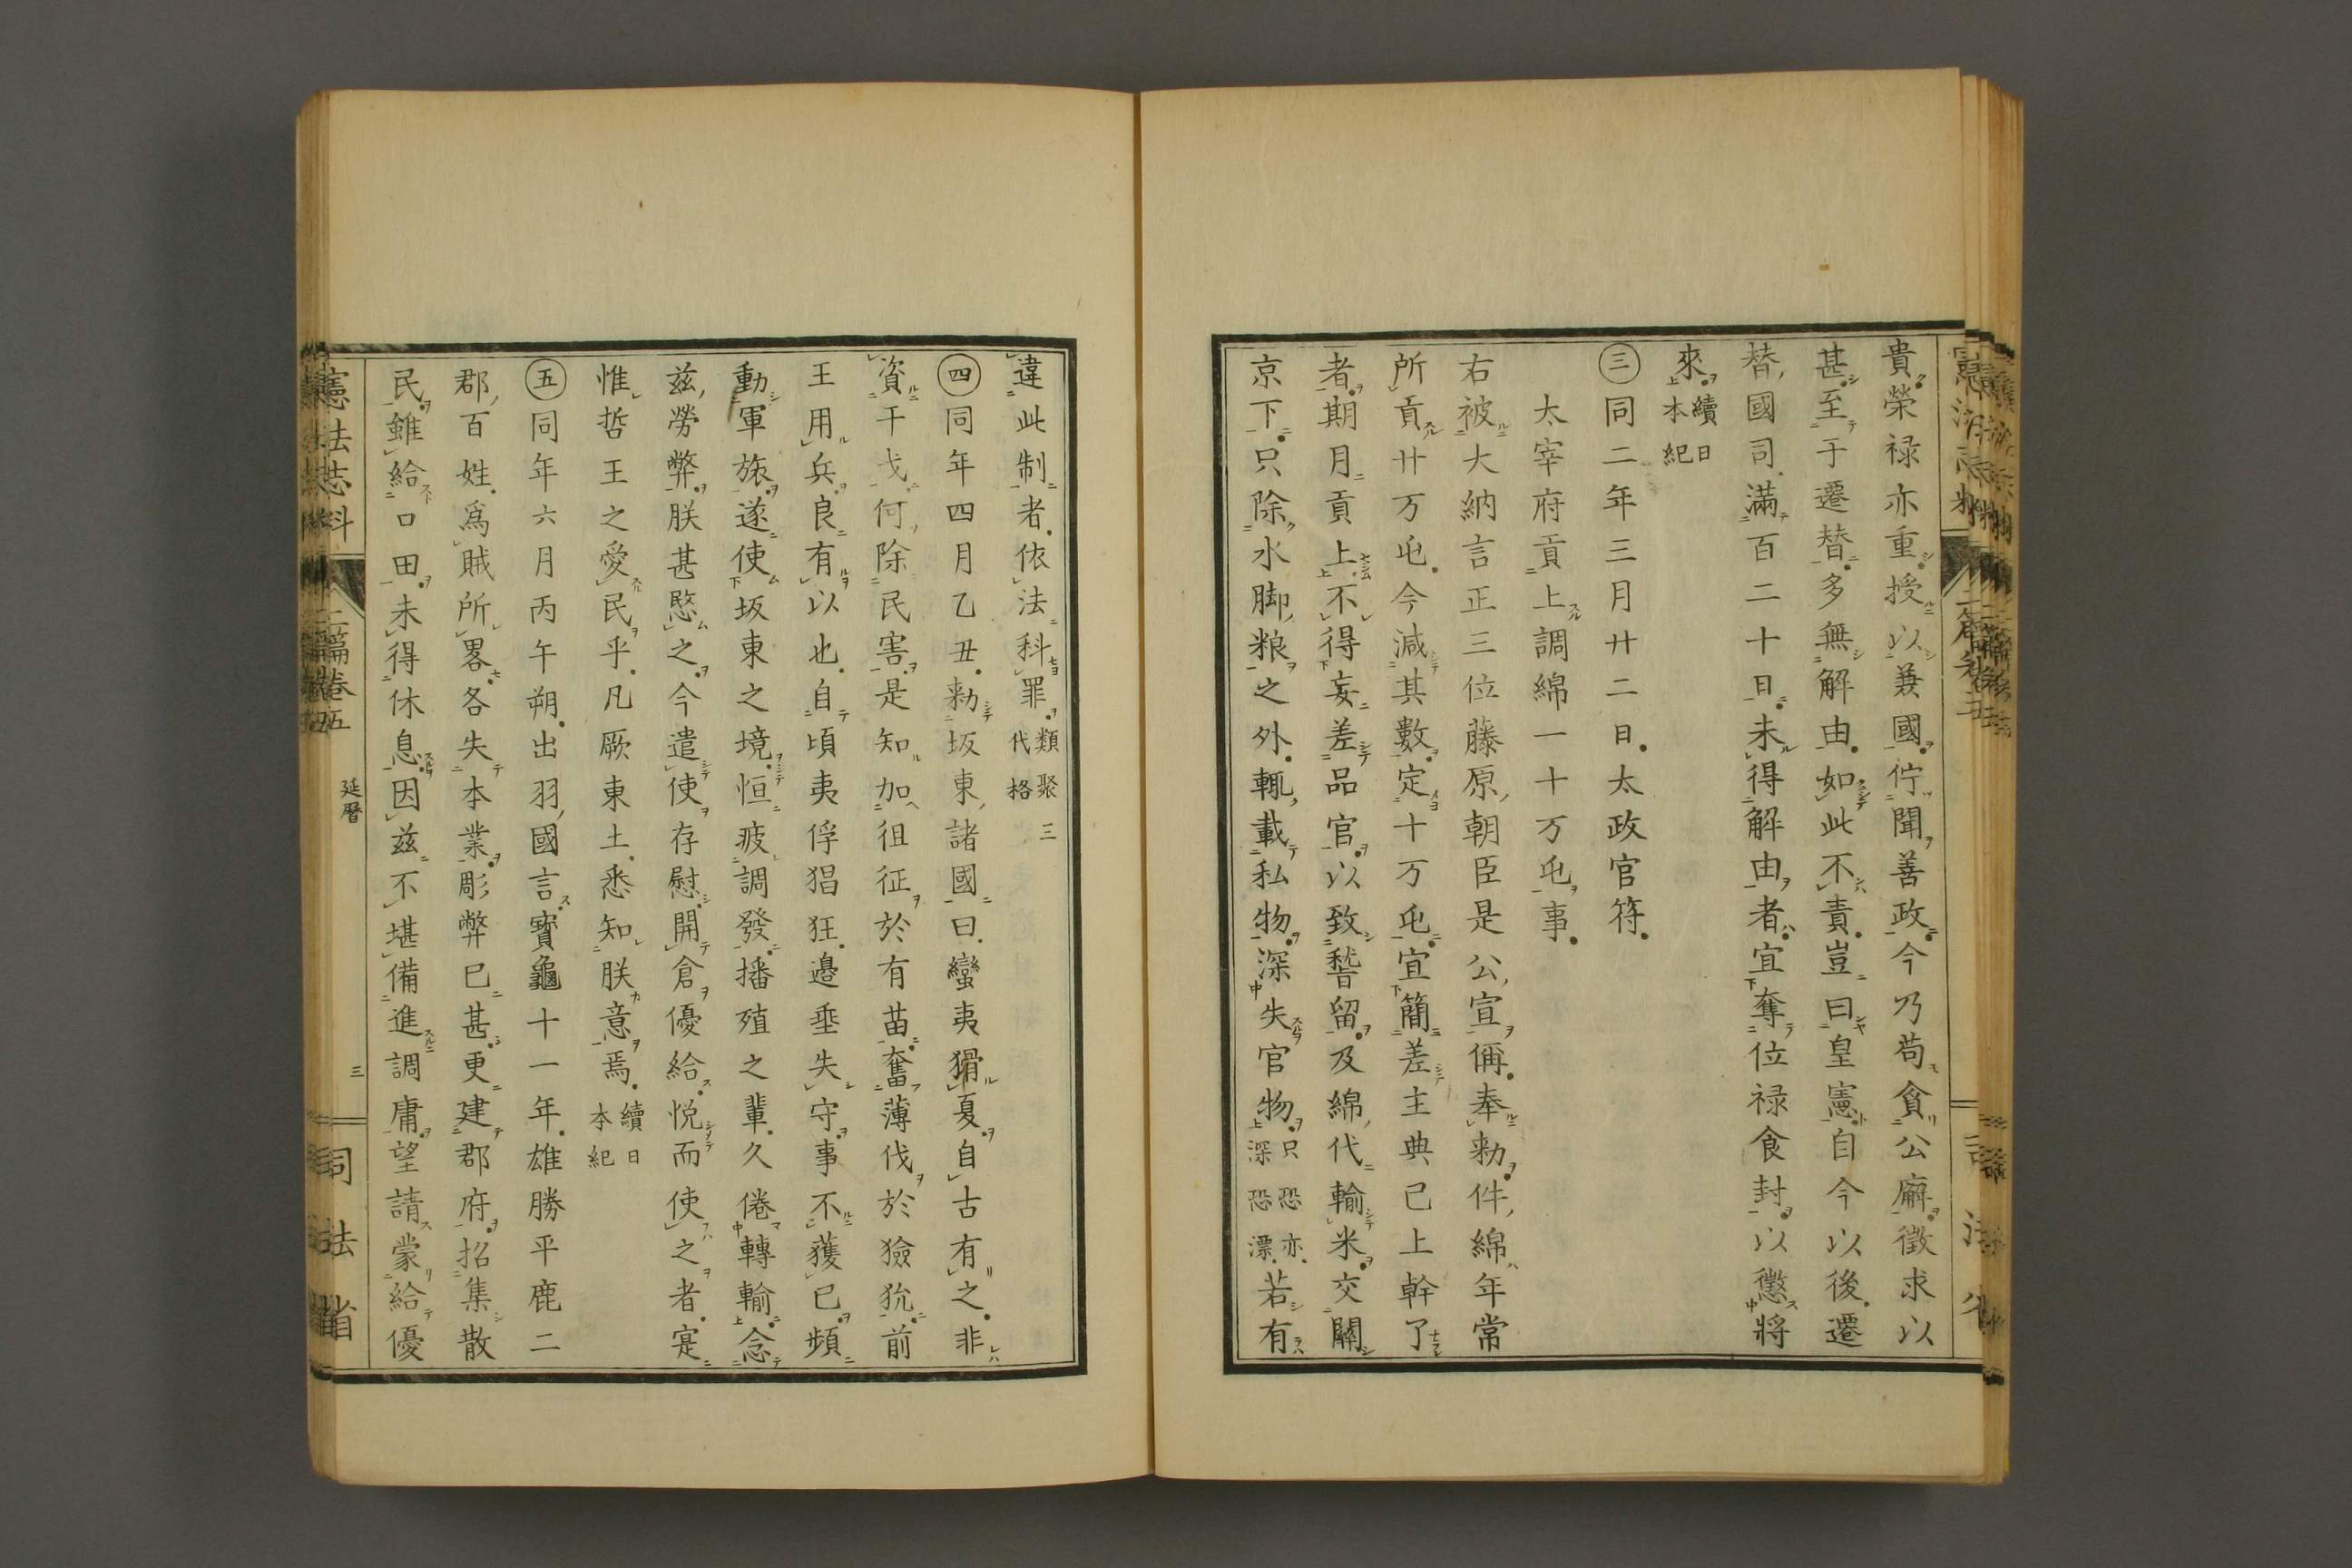 貴榮禄亦重授以兼國佇聞善政今乃苟貪公廨徵求以
甚至于遷替多無解由如此不責豈曰皇憲自今以後遷
替國司滿百二十日未得解由者宜奪位禄食封以懲將
來續日本紀
㊂同二年三月廿二日太政官符
太宰府貢上調綿一十万屯事
右被大納言正三位藤原朝臣是公宣偁奉勅件綿年常
所貢廿万屯今減其數定十万屯宜簡差主典已上幹了
者期月貢上不得妄差品官以致稽留及綿代輸米交關
京下只除水脚粮之外輙載私物深失官物只恐亦深恐漂若有
違此制者依法科罪類聚三代格
㊃同年四月乙丑勅坂東諸國曰蠻夷猾夏自古有之非
資干戈何除民害是知加徂征於有苗奮薄伐於獫狁前
王用兵良有以也自頃夷俘猖狂邉垂失守事不獲已頻
動軍旅遂使坂東之境恒疲調發播殖之輩久倦轉輸念
茲勞弊朕甚愍之今遣使存慰開倉優給悦而使之者寔
惟哲王之愛民乎凡厥東土悉知朕意焉續日本紀
㊄同年六月丙午朔出羽國言寶龜十一年雄勝平鹿二
郡百姓爲賊所畧各失本業彫弊已甚更建郡府招集散
民雖給口田未得休息因茲不堪備進調庸望請蒙給優
憲法志料 二篇卷五 延暦 三 司法省